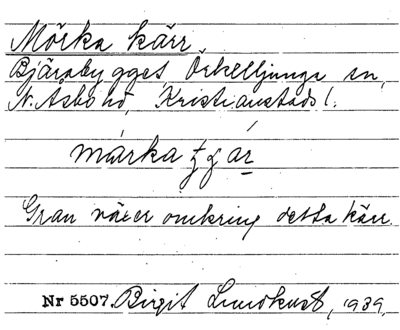 Mörka kärr
Bjärabygget Örkelljunga sn,
N. Åsbo hd, Kristianstads l.
márka
Gran växer omkring detta kärr.
Nr 5507. Birgit Lundkvist, 1939.